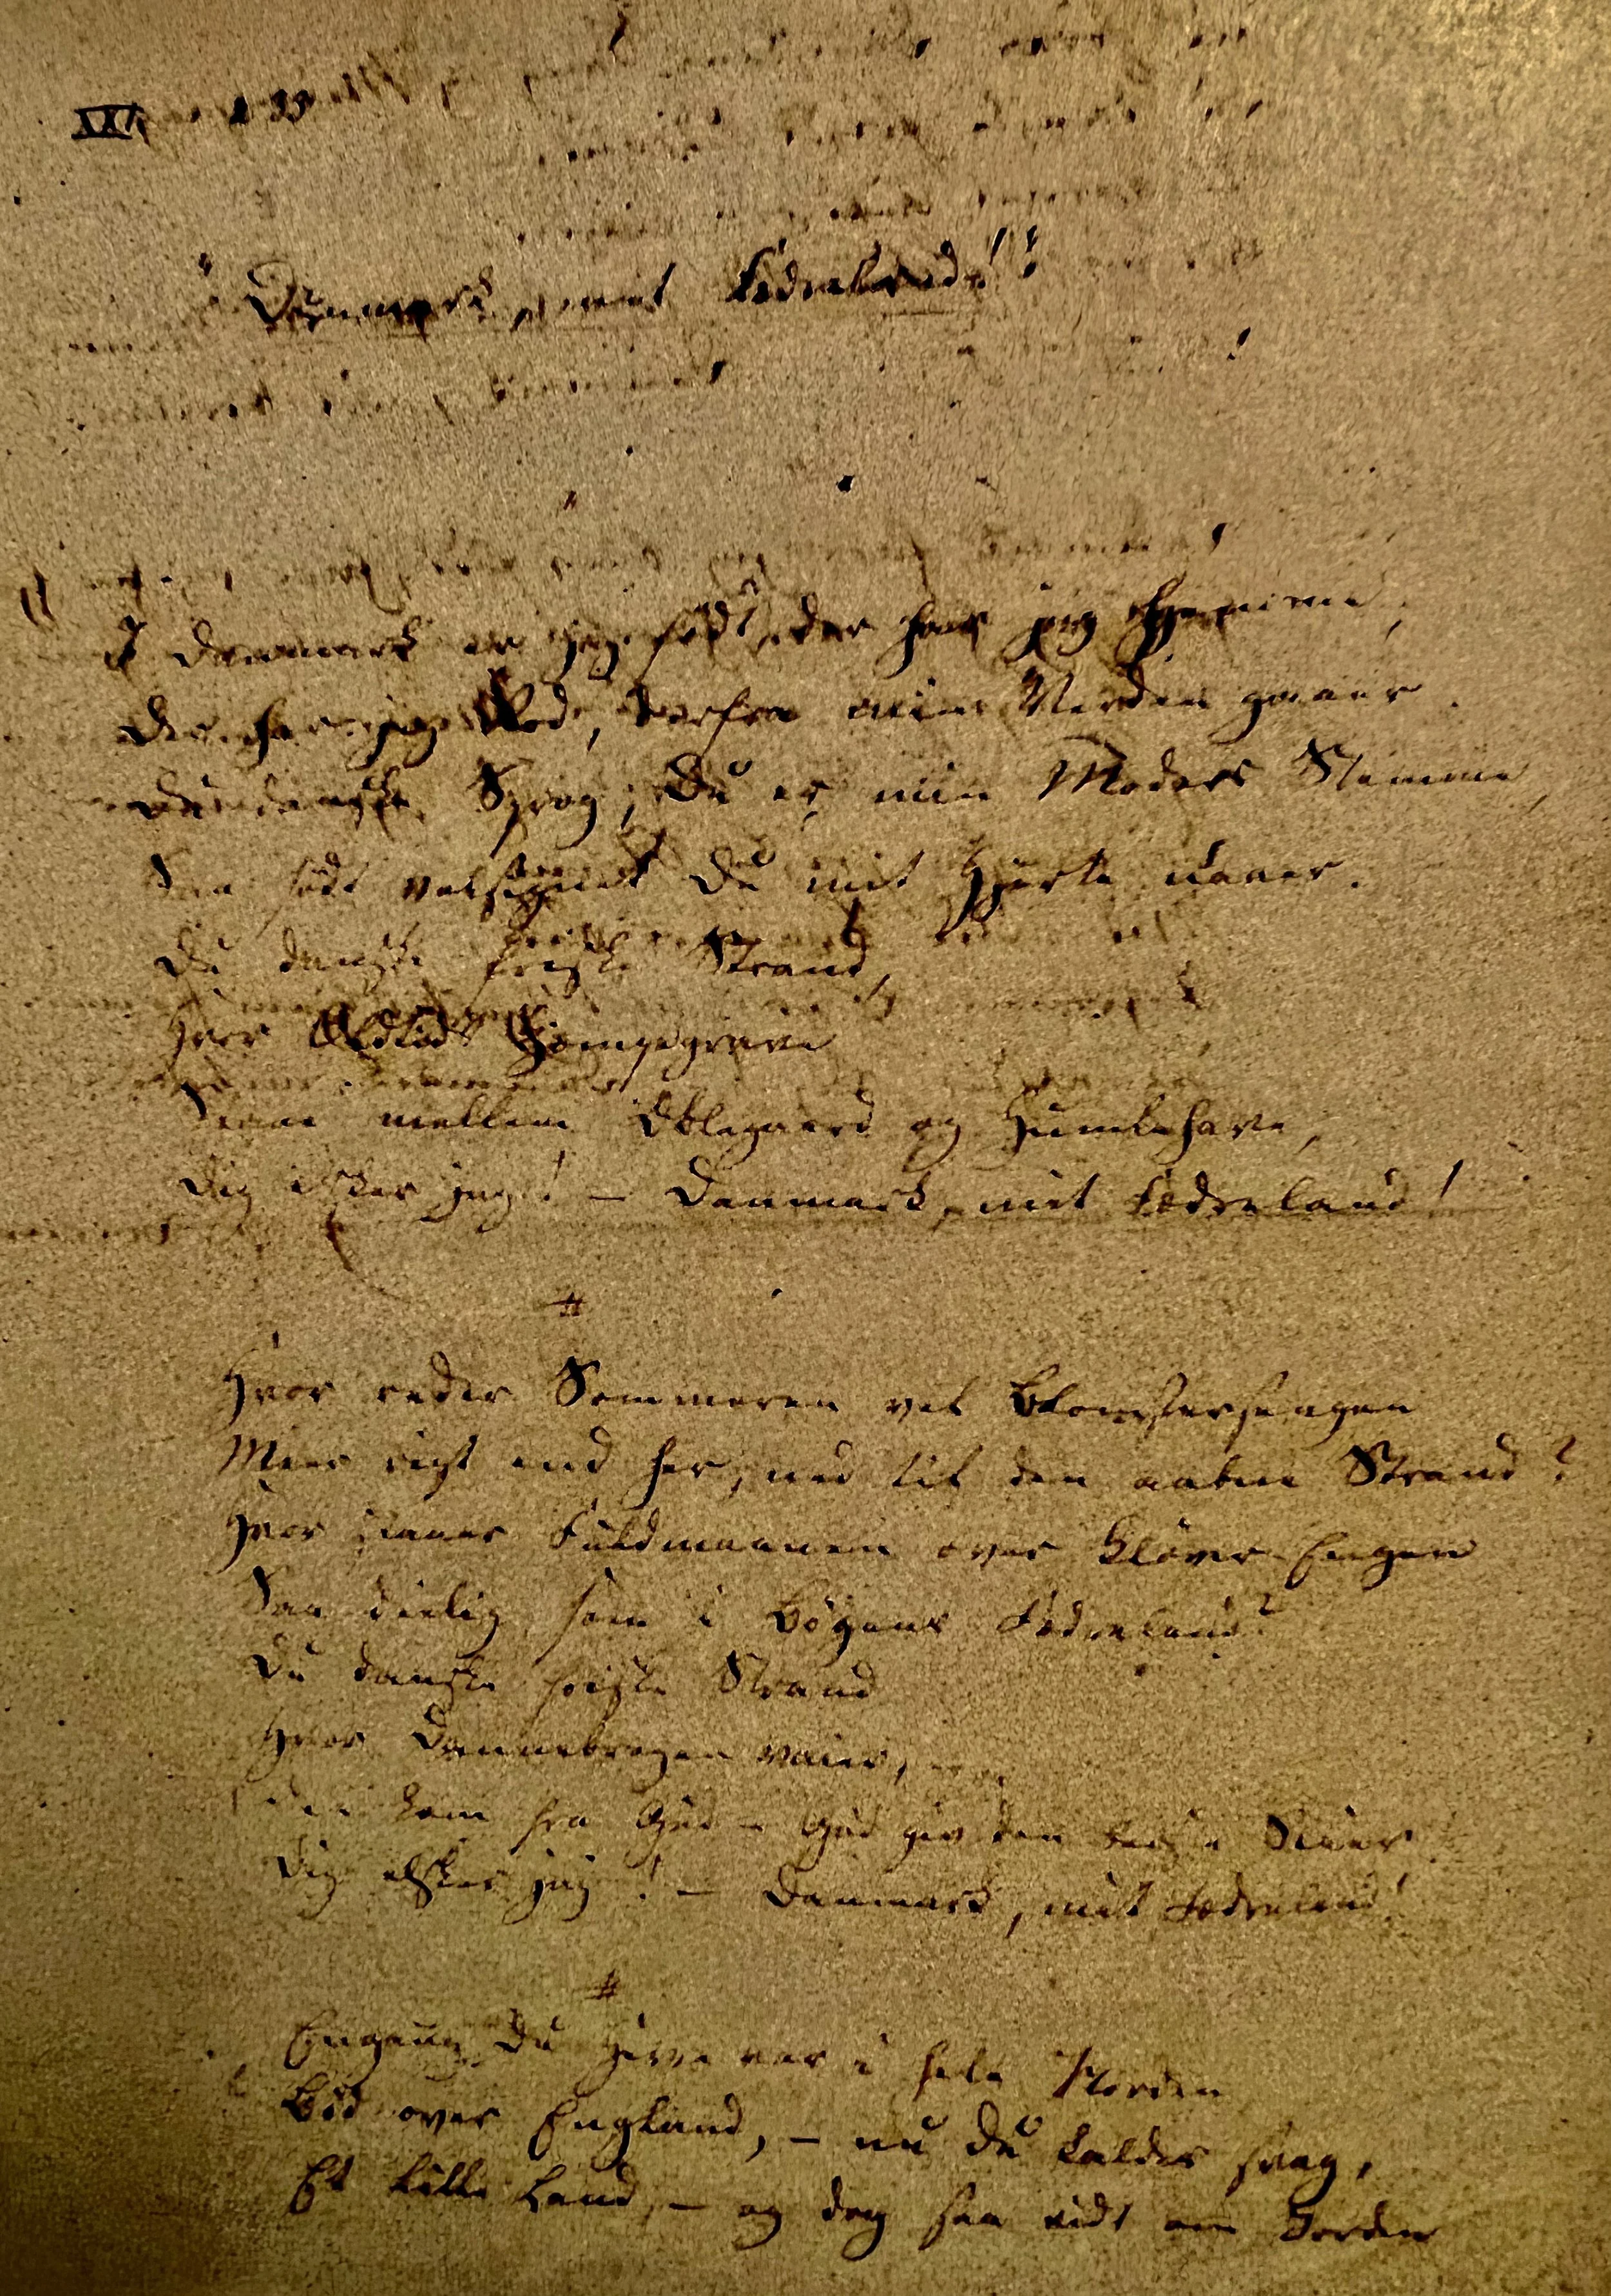 "Danmark, mit Fædreland!"
I Danmark er jeg født, der har jeg Hjemme,
Der har jeg Rod, derfra min Verden gaaer.
Du danske Sprog, Du er min Moders Stemme,
Saa sødt velsignet Du mit Hjerte naaer.
Du danske friske Strand,
Hvor Oldtids Kjæmpegrave
Staae mellem Æblegaard og Humlehave,
Dig elsker jeg! – Danmark, mit Fædreland!
#
Hvor reder Sommeren vel Blomstersengen
Meer rigt end her, ned til den aabne Strand?
Hvor staaer Fuldmaanen over Kløver-Engen
Saa deilig som i Bøgens Fædreland?
Du danske friske Strand
Hvor Dannebrogen vaier,
Den kom fra Gud – Gud giv den Seier
Dig elsker jeg! – Danmark, mit Fædreland!
#
Engang Du Herre var i hele Norden
Bød over England, – nu Du kaldes svag,
Et lille Land, – og dog saa vidt om Jorden